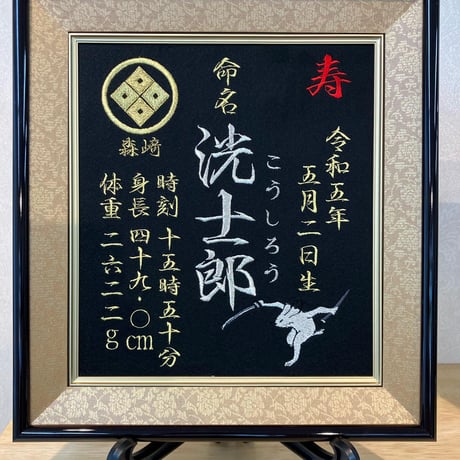 寿
令和五年
五月二日生
命名
洸士郎
こうしろう
森﨑
時刻 十五時五十分
身長 四十九・〇cm
体重 二六二二g